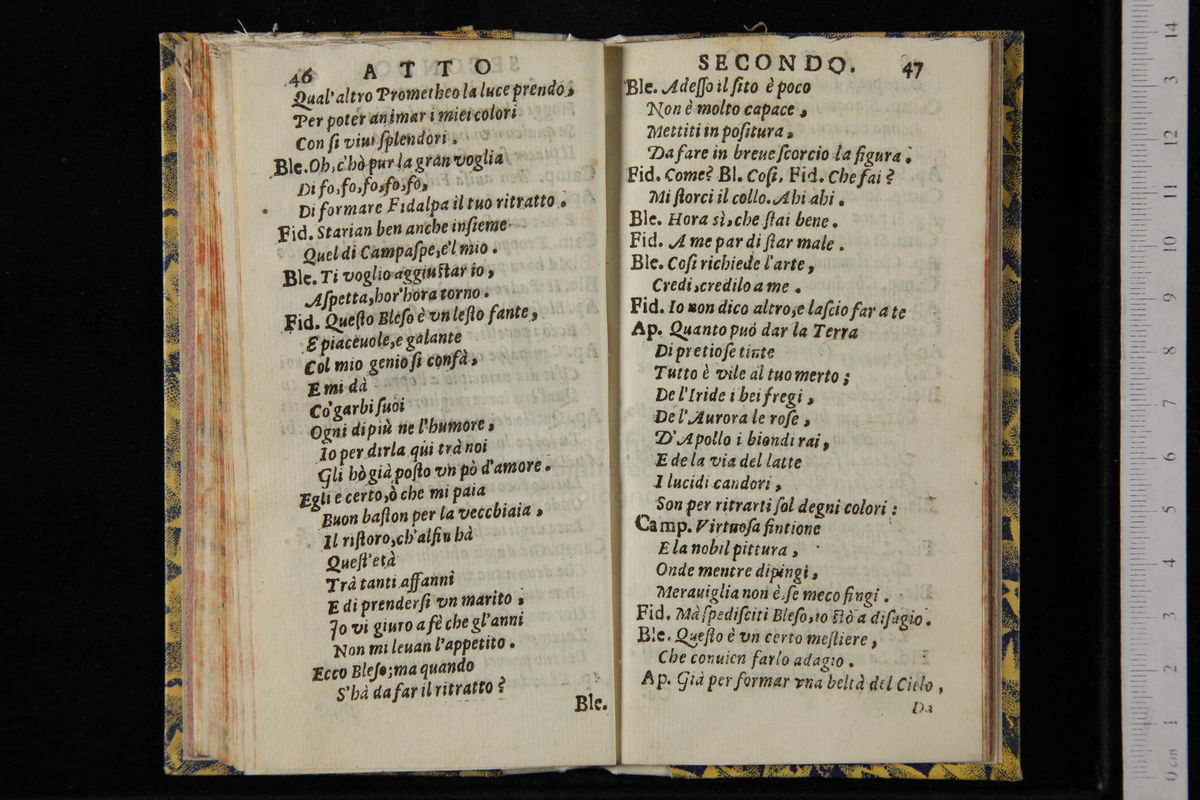 46 ATTO
Qual'altro Prometheo la luce prendo,
Per poter animar i miei colori
Con si viui splendori.
Ble. Oh, c'hò pur la gran voglia
Di fo, fo, fo, fo, fo,
Di formare Fidalpa il tuo ritratto.
Fid. Starian ben anche insieme
Quel di Campaspe, e'l mio.
Ble. Ti voglio aggiustar io,
Aspetta, hor'hora torno.
Fid. Questo Bleso è vn lesto fante,
E piaceuole, e galante
Col mio genio si confà,
E mi dà
Co' garbi suoi
Ogni dì più ne l'humore,
Io per dirla quì trà noi
Gli hò già posto vn pò d'amore.
Egli e certo, ò che mi paia
Buon baston per la vecchiaia,
Il ristoro, ch'alfin hà
Quest'età
Trà tanti affanni
E di prendersi vn marito;
Io vi giuro a fè che gl'anni
Non mi leuan l'appetito.
Ecco Bleso; ma quando
S'hà da far il ritratto?
Ble.
SECONDO. 47
Ble. Adesso il sito è poco
Non è molto capace,
Mettiti in positura,
Da fare in breue scorcio la figura.
Fid. Come? Bl. Cosi, Fid. Che fai?
Mi storci il collo. Ahi ahi.
Ble. Hora sì, che stai bene.
Fid. A me par di star male.
Ble. Cosi richiede l'arte,
Credi, credilo a me.
Fid. Io non dico altro, e lascio far a te
Ap. Quanto può dar la Terra
Di pretiose tinte
Tutto è vile al tuo merto;
De l'Iride i bei fregi,
De l'Aurora le rose,
D'Apollo i biondi rai,
E de la via del latte
I lucidi candori,
Son per ritrarti sol degni colori:
Camp. Virtuosa fintione
E la nobil pittura,
Onde mentre dipingi,
Merauiglia non è, se meco fingi.
Fid. Mà spedisciti Bleso, io stò a disagio.
Ble. Questo è vn certo mestiere,
Che conuien farlo adagio.
Ap. Già per formar vna beltà del Cielo,
Da